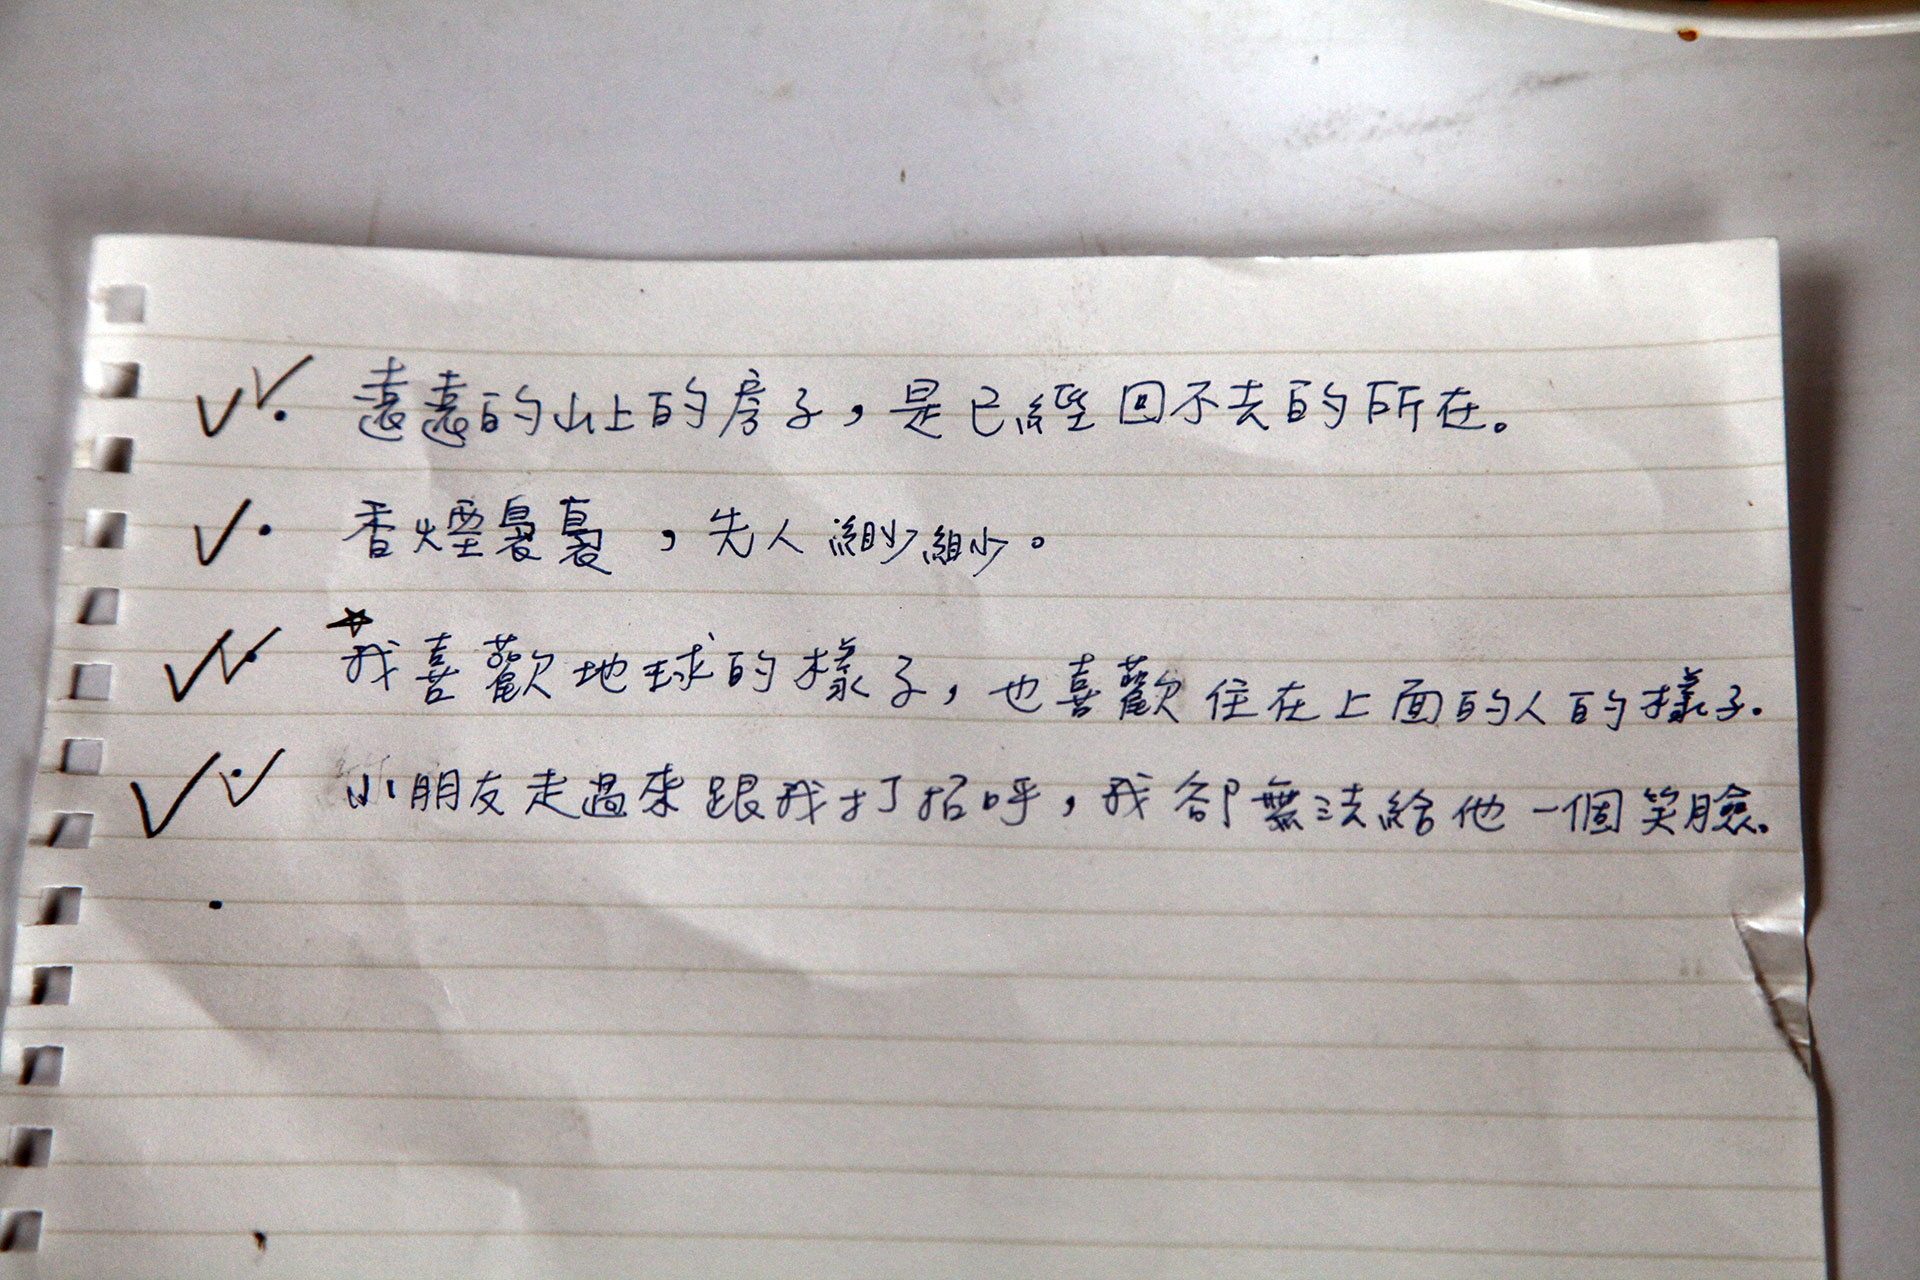 遠遠的山上的房子，是已經回不去的所在。
香煙裊裊，先人緲緲。
我喜歡地球的樣子，也喜歡住在上面的人的樣子。
小朋友走過來跟我打招呼，我卻無法給他一個笑臉。